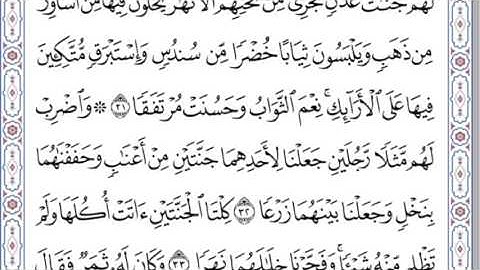 لَهُمْ جَنَّٰتُ عَدْنٍ تَجْرِى مِن تَحْتِهِمُ ٱلْأَنْهَٰرُ يُحَلَّوْنَ فِيهَا مِنْ أَسَاوِرَ
مِن ذَهَبٍ وَيَلْبَسُونَ ثِيَابًا خُضْرًا مِّن سُندُسٍ وَإِسْتَبْرَقٍ مُّتَّكِـِٔينَ
فِيهَا عَلَى ٱلْأَرَآئِكِ ۚ نِعْمَ ٱلثَّوَابُ وَحَسُنَتْ مُرْتَفَقًا ٣١ ۞ وَٱضْرِبْ
لَهُم مَّثَلًا رَّجُلَيْنِ جَعَلْنَا لِأَحَدِهِمَا جَنَّتَيْنِ مِنْ أَعْنَٰبٍ وَحَفَفْنَٰهُمَا
بِنَخْلٍ وَجَعَلْنَا بَيْنَهُمَا زَرْعًا ٣٢ كِلْتَا ٱلْجَنَّتَيْنِ ءَاتَتْ أُكُلَهَا وَلَمْ
تَظْلِم مِّنْهُ شَيْـًٔا ۚ وَفَجَّرْنَا خِلَٰلَهُمَا نَهَرًا ٣٣ وَكَانَ لَهُۥ ثَمَرٌ فَقَالَ